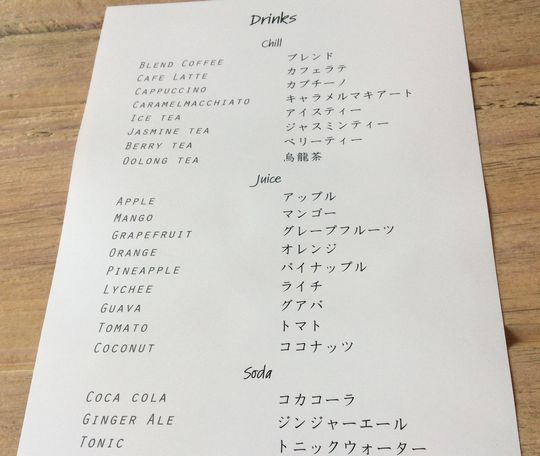 Drinks
Chill
BLEND COFFEE ブレンド
CAFE LATTE カフェラテ
CAPPUCCINO カプチーノ
CARAMELMACCHIATO キャラメルマキアート
ICE TEA アイスティー
JASMINE TEA ジャスミンティー
BERRY TEA ベリーティー
OOLONG TEA 烏龍茶
Juice
APPLE アップル
MANGO マンゴー
GRAPEFRUIT グレープフルーツ
ORANGE オレンジ
PINEAPPLE パイナップル
LYCHEE ライチ
GUAVA グアバ
TOMATO トマト
COCONUT ココナッツ
Soda
COCA COLA コカコーラ
GINGER ALE ジンジャーエール
TONIC トニックウォーター